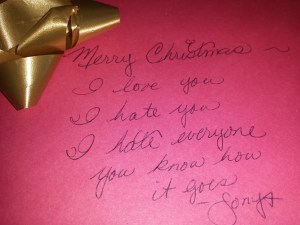 Merry Christmas ~
I love you
I hate you
I hate everyone
you know how
it goes